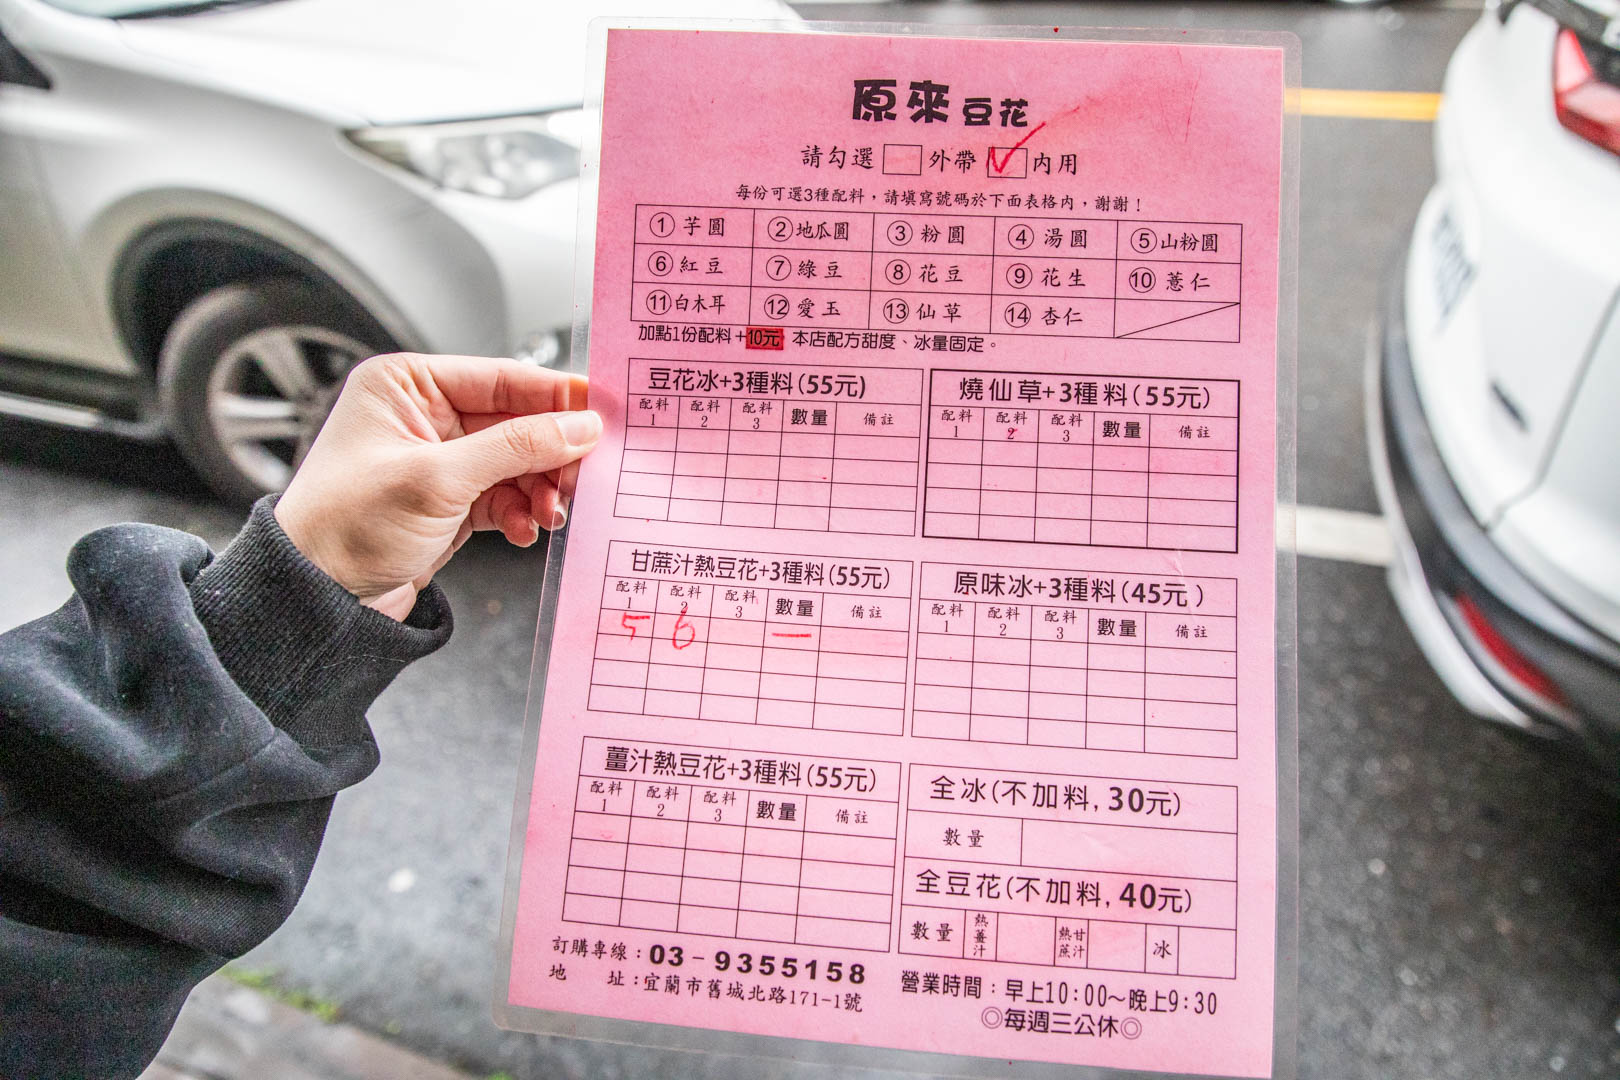 原來豆花
請勾選 外帶 ✓ 內用
每份可選3種配料，請填寫號碼於下面表格內，謝謝！
①芋圓 ②地瓜圓 ③粉圓 ④湯圓 ⑤山粉圓
⑥紅豆 ⑦綠豆 ⑧花豆 ⑨花生 ⑩薏仁
⑪白木耳 ⑫愛玉 ⑬仙草 ⑭杏仁
加點1份配料+10元 本店配方甜度、冰量固定。
豆花冰+3種料(55元)
配料1 配料2 配料3 數量 備註
燒仙草+3種料(55元)
配料1 配料2 配料3 數量 備註
甘蔗汁熱豆花+3種料(55元)
配料1 配料2 配料3 數量 備註
5 6 一
原味冰+3種料(45元)
配料1 配料2 配料3 數量 備註
薑汁熱豆花+3種料(55元)
配料1 配料2 配料3 數量 備註
全冰(不加料,30元)
數量
全豆花(不加料,40元)
數量 熱薑汁 熱甘蔗汁 冰
訂購專線：03-9355158
地址：宜蘭市舊城北路171-1號
營業時間：早上10:00～晚上9:30
◎每週三公休◎